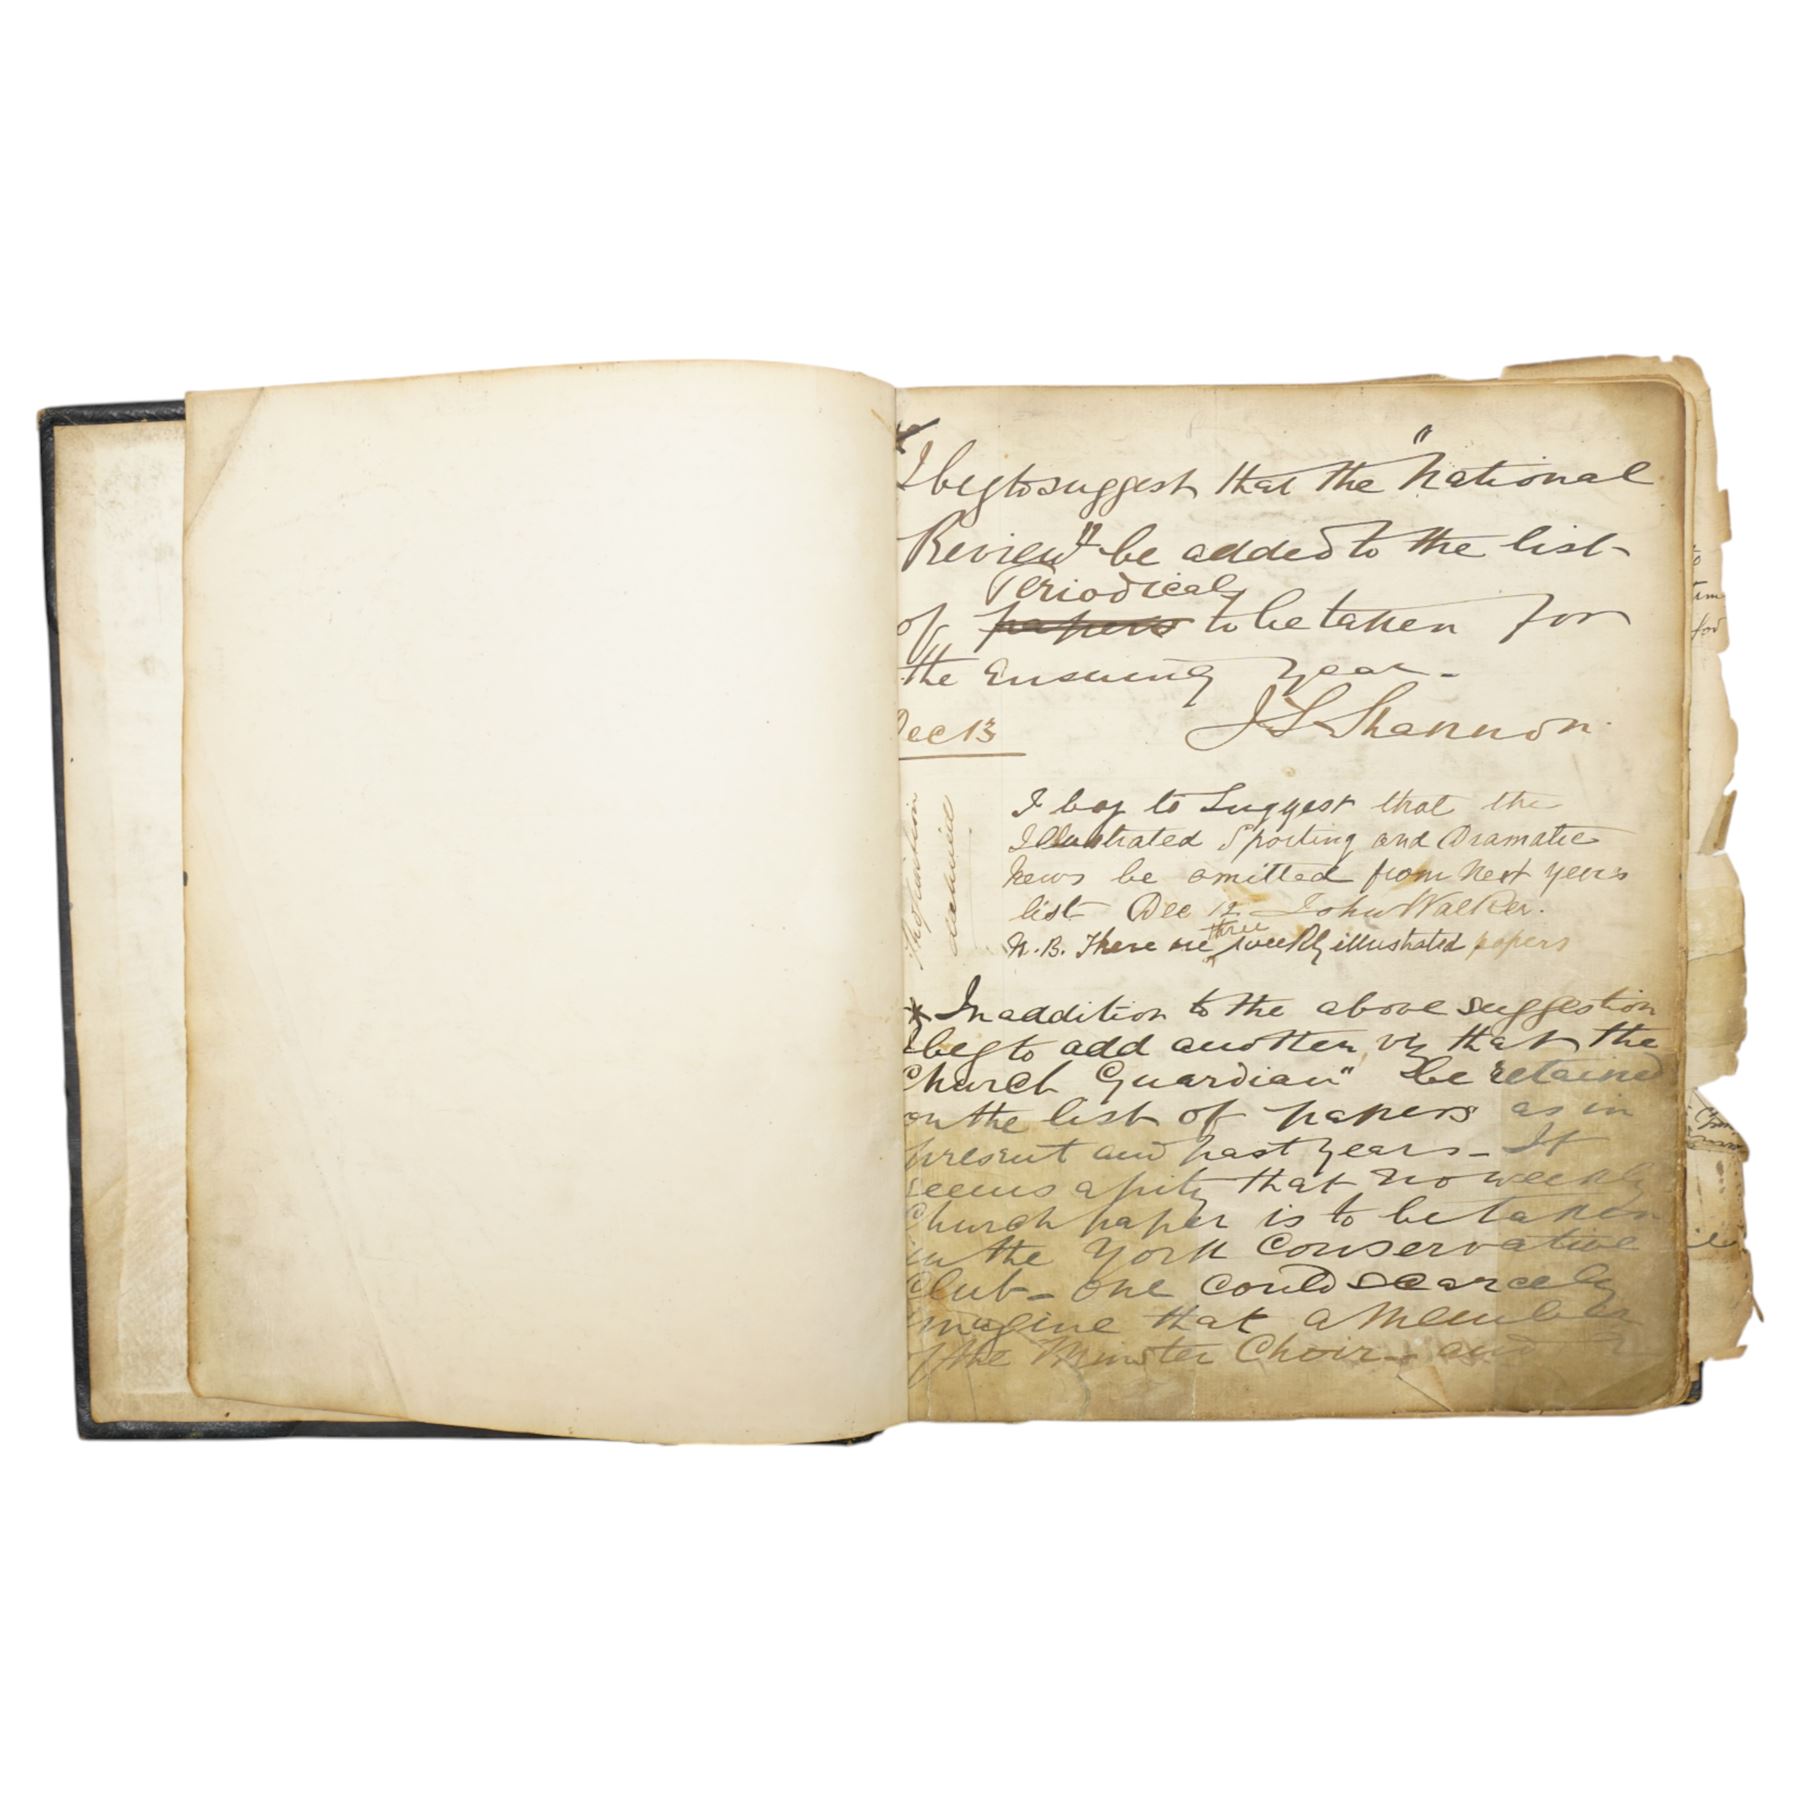 I beg to suggest that the "National
Review" be added to the list
Periodical
of papers to be taken for
the ensuing year -
Dec 13
J L Shannon.
I beg to Suggest that the
Illustrated Sporting and Dramatic
News be omitted from next years
list Dec 12 John Walker.
three
N.B. There are weekly illustrated papers
declined
* In addition to the above suggestion
I beg to add another viz that the
Church Guardian" be retained
on the list of papers as in
present and past years - It
seems a pity that no weekly
Church paper is to be taken
in the York Conservative
Club - One could scarcely
imagine that a Member
of the Minster Choir - and